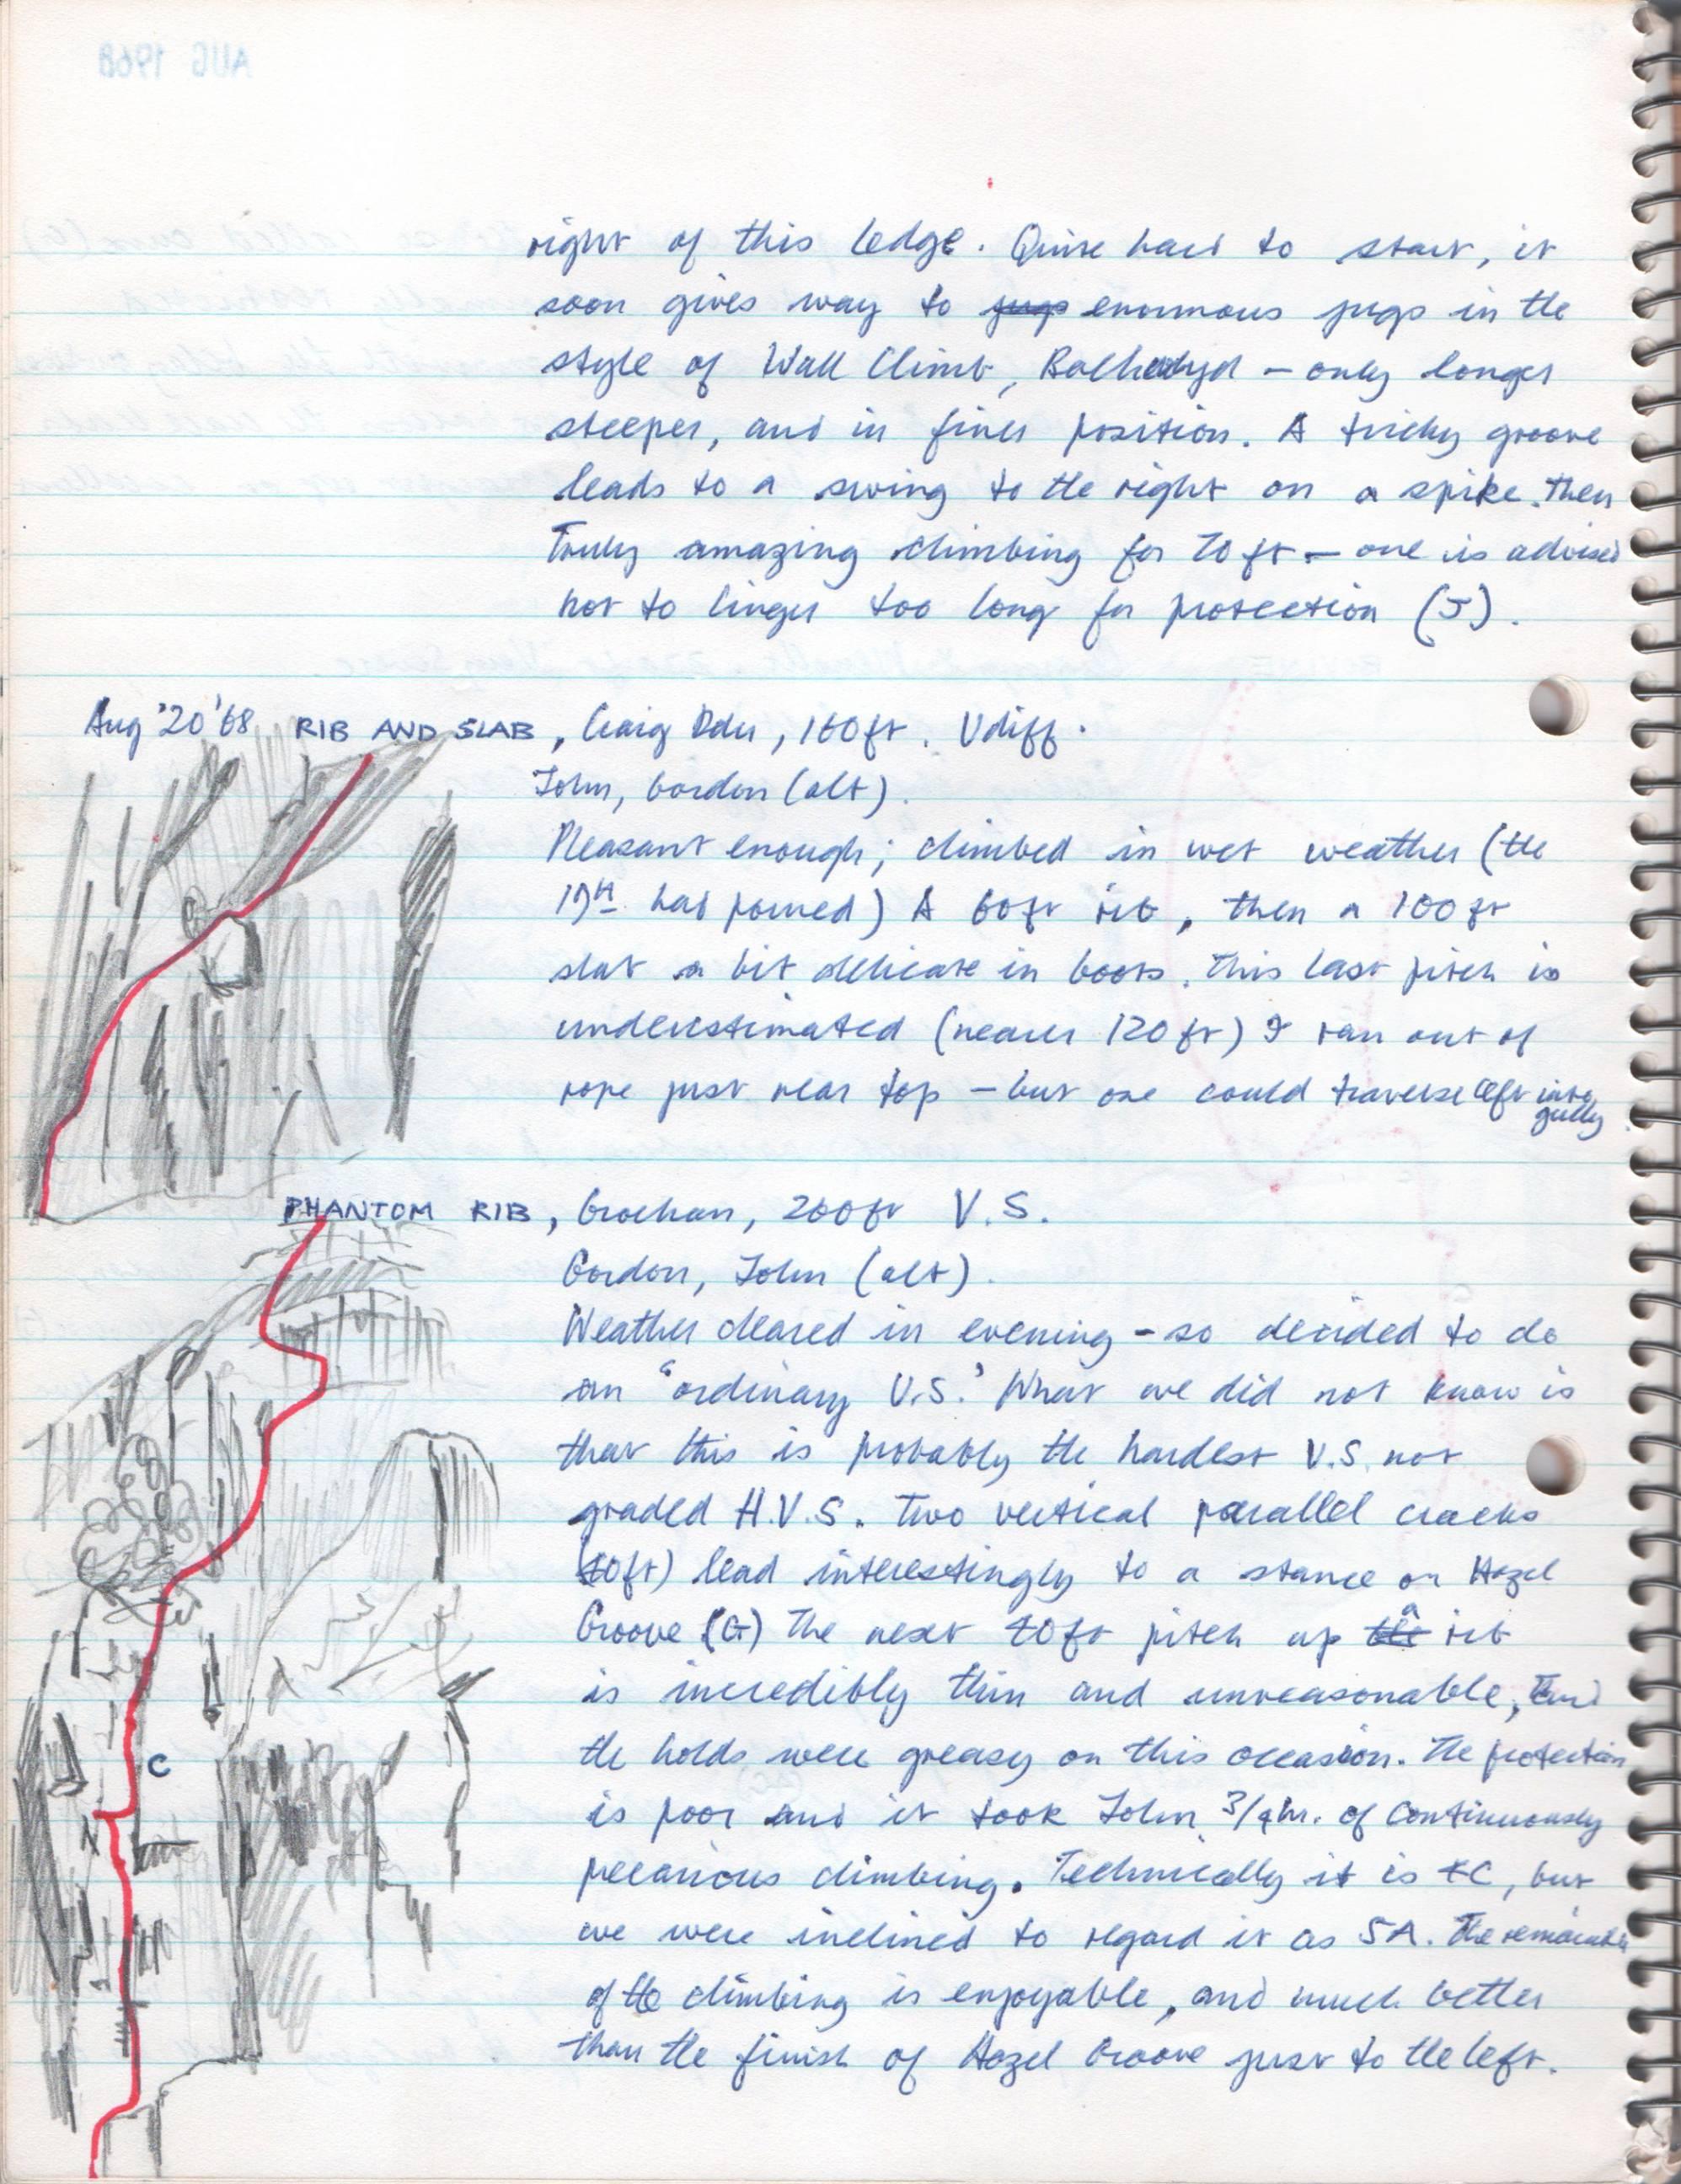 right of this ledge. Quite hard to start, it
soon gives way to jugs enormous jugs in the
style of Wall Climb, - only longer
steeper, and in finer position. A tricky groove
leads to a swing to the right on a spike. Then
Truly amazing climbing for 70 ft. - one is advised
not to linger too long for protection (J).
Aug '20 '68 RIB AND SLAB, Craig Ddu, 160ft. Vdiff.
John, Gordon (alt).
Pleasant enough; climbed in wet weather (the
19th had poured) A 60ft rib, then a 100ft
slab a bit delicate in boots. This last pitch is
underestimated (nearer 120ft) I ran out of
rope just near top - but one could traverse left into
gully.
PHANTOM RIB, Grochan, 200ft V.S.
Gordon, John (alt).
Weather cleared in evening - so decided to do
an "ordinary V.S.' What we did not know is
that this is probably the hardest V.S. not
graded H.V.S. Two vertical parallel cracks
lead interestingly to a stance on Hazel
Groove (G) The next 70ft pitch up the a rib
is incredibly thin and unreasonable, and
the holds were greasy on this occasion. The protection
is poor and it took John 3/4 hr. of continuously
precarious climbing. Technically it is 4C, but
we were inclined to regard it as 5A. The remainder
of the climbing is enjoyable, and much better
than the finish of Hazel Groove just to the left.
C